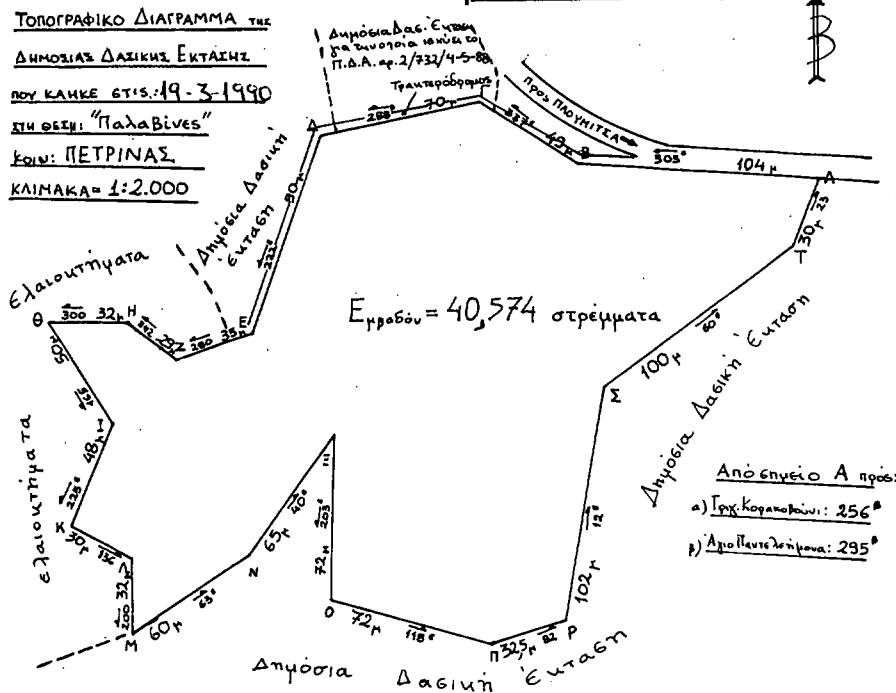 ΤΟΠΟΓΡΑΦΙΚΟ ΔΙΑΓΡΑΜΜΑ ΤΗΣ
ΔΗΜΟΣΙΑΣ ΔΑΣΙΚΗΣ ΕΚΤΑΣΗΣ
ΠΟΥ ΚΑΗΚΕ ΣΤΙΣ: 19-3-1990
ΣΤΗ ΘΕΣΗ: "Παλαβίνες"
ΚΟΙΝ: ΠΕΤΡΙΝΑΣ
ΚΛΙΜΑΚΑ = 1:2.000
Δημόσια Δασ. Έκταση
για την οποία ισχύει το
Π.Δ.Α. αρ. 2/732/4-5-88
Τρακτερόδρομος
Β
Προς ΠΛΟΥΜΙΤΣΑ
Δ
288ᵍ
70μ
Γ
337ᵍ
49μ
Β
303ᵍ
104μ
Α
25
30μ
Τ
Δημόσια Δασική
Έκταση
90μ
222ᵍ
Ελαιοκτήματα
Θ
300
32μ
Η
342
29
Ζ
280
35μ
Ε
Εμβαδόν = 40,574 στρέμματα
50μ
165
Ι
48μ
225ᵍ
Κ
ελαιοκτήματα
30μ
136
Λ
32μ
200
Μ
60μ
63ᵍ
Ν
65μ
40ᵍ
Ξ
203ᵍ
72μ
Ο
72μ
118ᵍ
Π
32,5μ
82
Ρ
102μ
12ᵍ
Σ
100μ
60ᵍ
Δημόσια Δασική Έκταση
Από σημείο Α προς:
α) Τριγ. Κορακοβούνι: 256ᵍ
β) Άγιο Παντελεήμονα: 295ᵍ
Δημόσια Δασική Έκταση